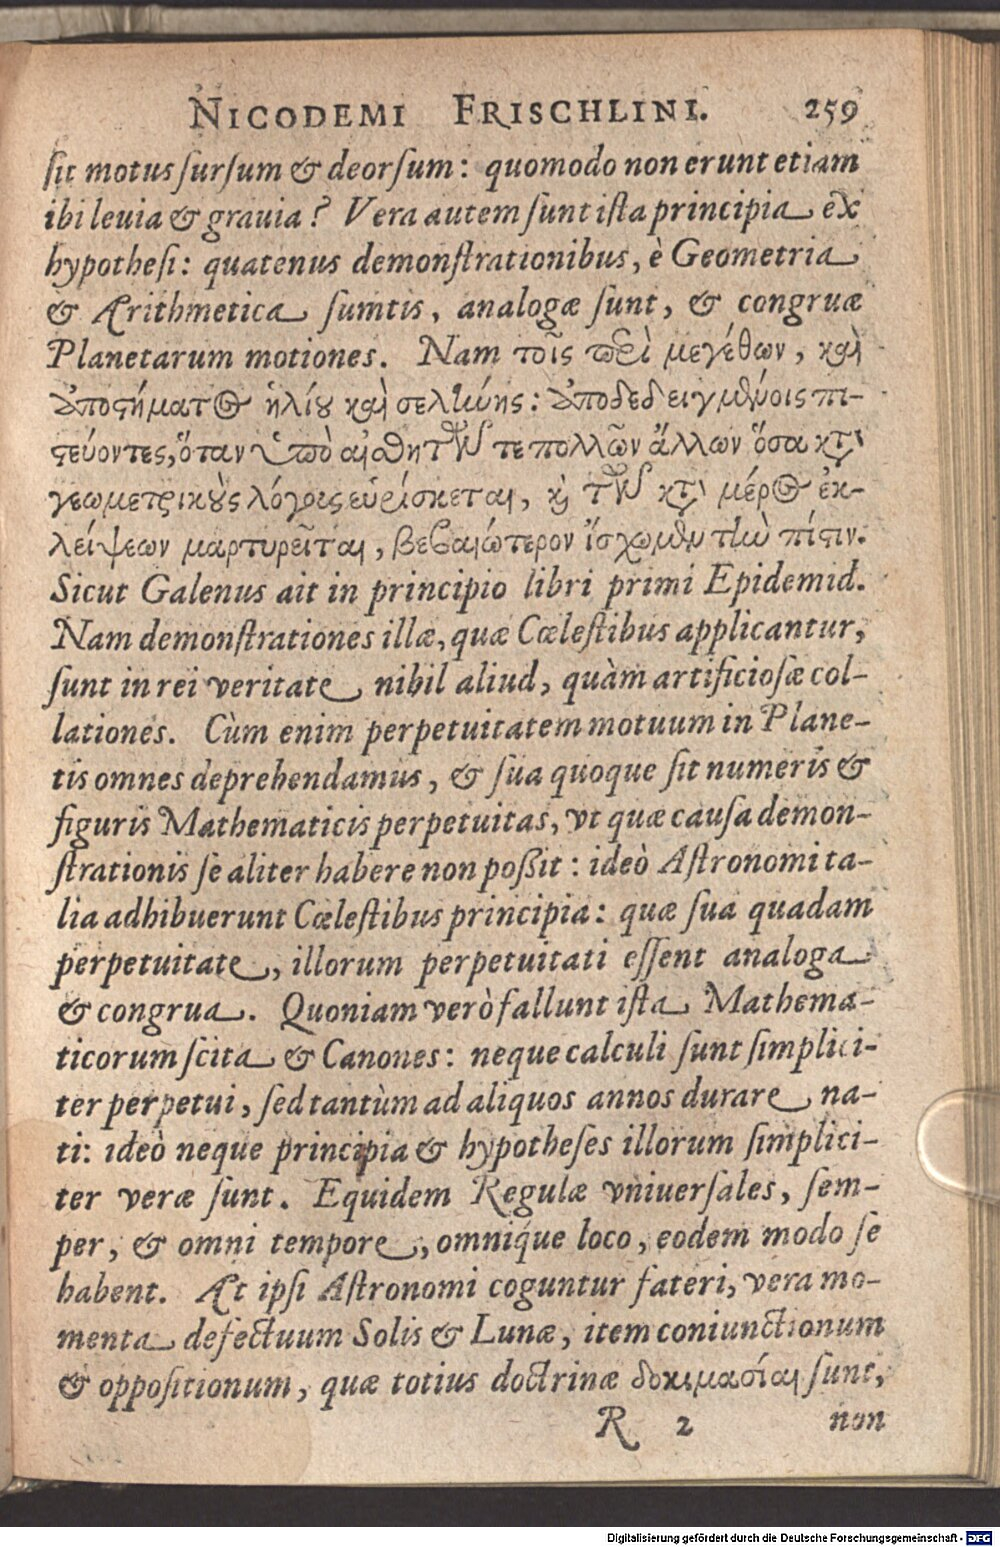 NICODEMI FRISCHLINI. 259
ſit motus ſurſum & deorſum: quomodo non erunt etiam
ibi leuia & grauia? Vera autem ſunt iſta principia ex
hypotheſi: quatenus demonſtrationibus, è Geometria
& Arithmetica ſumtis, analogæ ſunt, & congruæ
Planetarum motiones. Nam τοῖς περὶ μεγέθων, καὶ
ἀποστήματος ἡλίου καὶ σελήνης: ἀποδεδειγμένοις πι-
στεύοντες, ὅταν ὑπὸ αἰσθητῶν τε πολλῶν ἄλλων ὅσα κατὰ
γεωμετρικοὺς λόγοις εὑρίσκεται, καὶ τῶν κατὰ μέρος ἐκ-
λείψεων μαρτυρεῖται, βεβαιώτερον ἴσχωμεν τὴν πίστιν.
Sicut Galenus ait in principio libri primi Epidemid.
Nam demonſtrationes illæ, quæ Cœleſtibus applicantur,
ſunt in rei veritate nihil aliud, quàm artificioſæ col-
lationes. Cùm enim perpetuitatem motuum in Plane-
tis omnes deprehendamus, & ſua quoque ſit numeris &
figuris Mathematicis perpetuitas, vt quæ cauſa demon-
ſtrationis ſe aliter habere non poßit: ideò Aſtronomi ta-
lia adhibuerunt Cœleſtibus principia: quæ ſua quadam
perpetuitate, illorum perpetuitati eſſent analoga
& congrua. Quoniam verò fallunt iſta Mathema-
ticorum ſcita & Canones: neque calculi ſunt ſimplici-
ter perpetui, ſed tantùm ad aliquos annos durare na-
ti: ideò neque principia & hypotheſes illorum ſimplici-
ter veræ ſunt. Equidem Regulæ vniuerſales, ſem-
per, & omni tempore, omniq́ue loco, eodem modo ſe
habent. At ipſi Aſtronomi coguntur fateri, vera mo-
menta defectuum Solis & Lunæ, item coniunctionum
& oppoſitionum, quæ totius doctrinæ δοκιμασίαι ſunt,
R 2 non
Digitalisierung gefördert durch die Deutsche Forschungsgemeinschaft - DFG